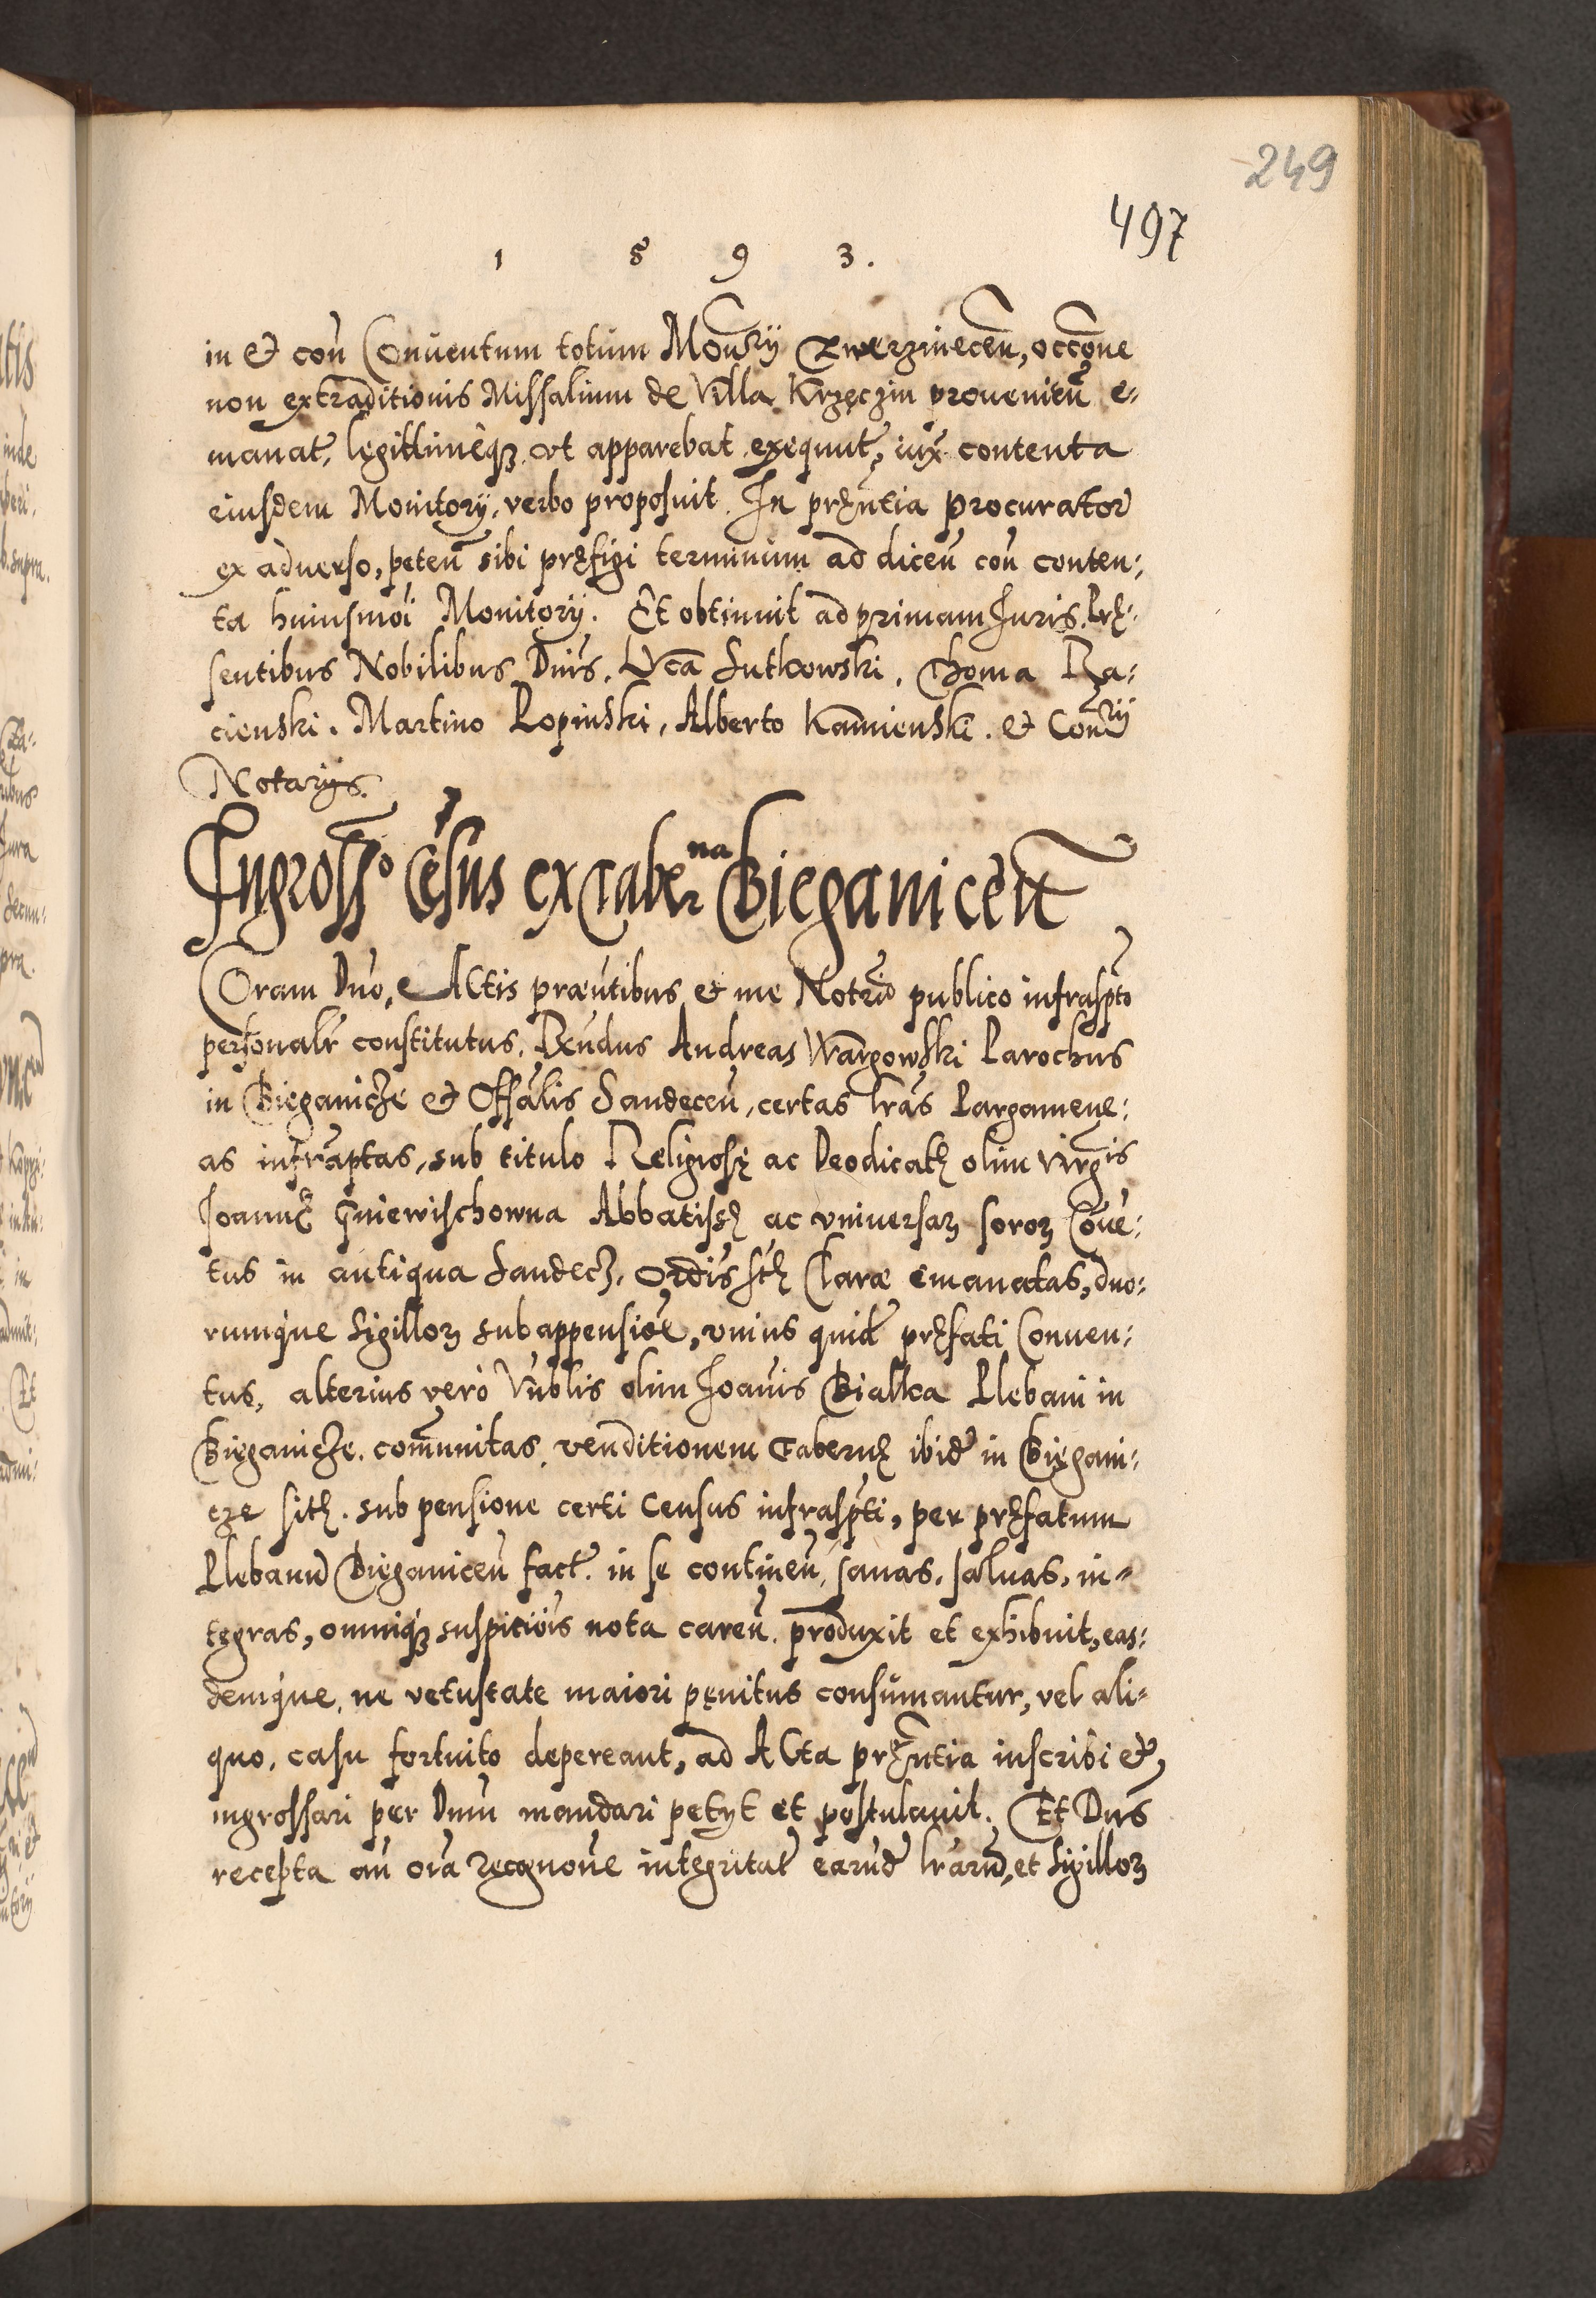 249
497
1 5 9 3.
in et con Conuentum totum Monrÿ Zwerzinecen, occone
non extraditionis Missalium de Villa Krzęczin prouenien e-
manat, legittimeqз vt apparebat exequut, iux contenta
eiusdem Monitorÿ, verbo proposuit. In pręntia Procurator
ex aduerso, peten sibi pręfigi terminum ad dicen con conten:
ta huiusmoi Monitorÿ. Et obtinuit ad primam Iuris. Prę:
sentibus Nobilibus Dnis. Luca Lutkowski, Thoma Ra:
cienski. Martino Ropinski, Alberto Kamienski. et Conrÿ
Notarÿs.
Ingrosso Cesus ex Taberna Bieganicen
Coram Dno, Actis præntibus et me Notrio publico infraspto
personalr constitutus, Rxndus Andreas Wargowski Parochus
in Bieganicze et Offalis Sandecen, certas lras Pargamene:
as infraptas, sub titulo Religiosę ac Deodicatę olim virgis
Ioannę Gniewischowna Abbatissę ac vniuersaꝝ soroꝝ Coue:
tus in antiqua Sandecz, Ordis stę Claræ emanatas, duo:
rumque Sigilloꝝ subappensioe, vnius quid pręfati Conuen:
tus, alterius verò Vnblis olim Ioanis Bialka Plebani in
Bieganicze. communitas, venditionem Tabernę ibid in Biegani:
cze sitę. sub pensione certi Census infraspti, per pręfatum
Plebanu Bieganicen fact. in se continen, sanas, saluas, in-
tegras, omniqз suspitiois nota caren. produxit et exhibuit, eas:
demque, ne vetustate maiori penitus consumantur, vel ali-
quo, casu fortuito depereant, ad Acta pręntia inscribi et,
ingrossari per Dnm mandari petÿt et postulauit. Et Dns
recepta an oia recognoue integritat earud lraru, et Sigilloꝝ